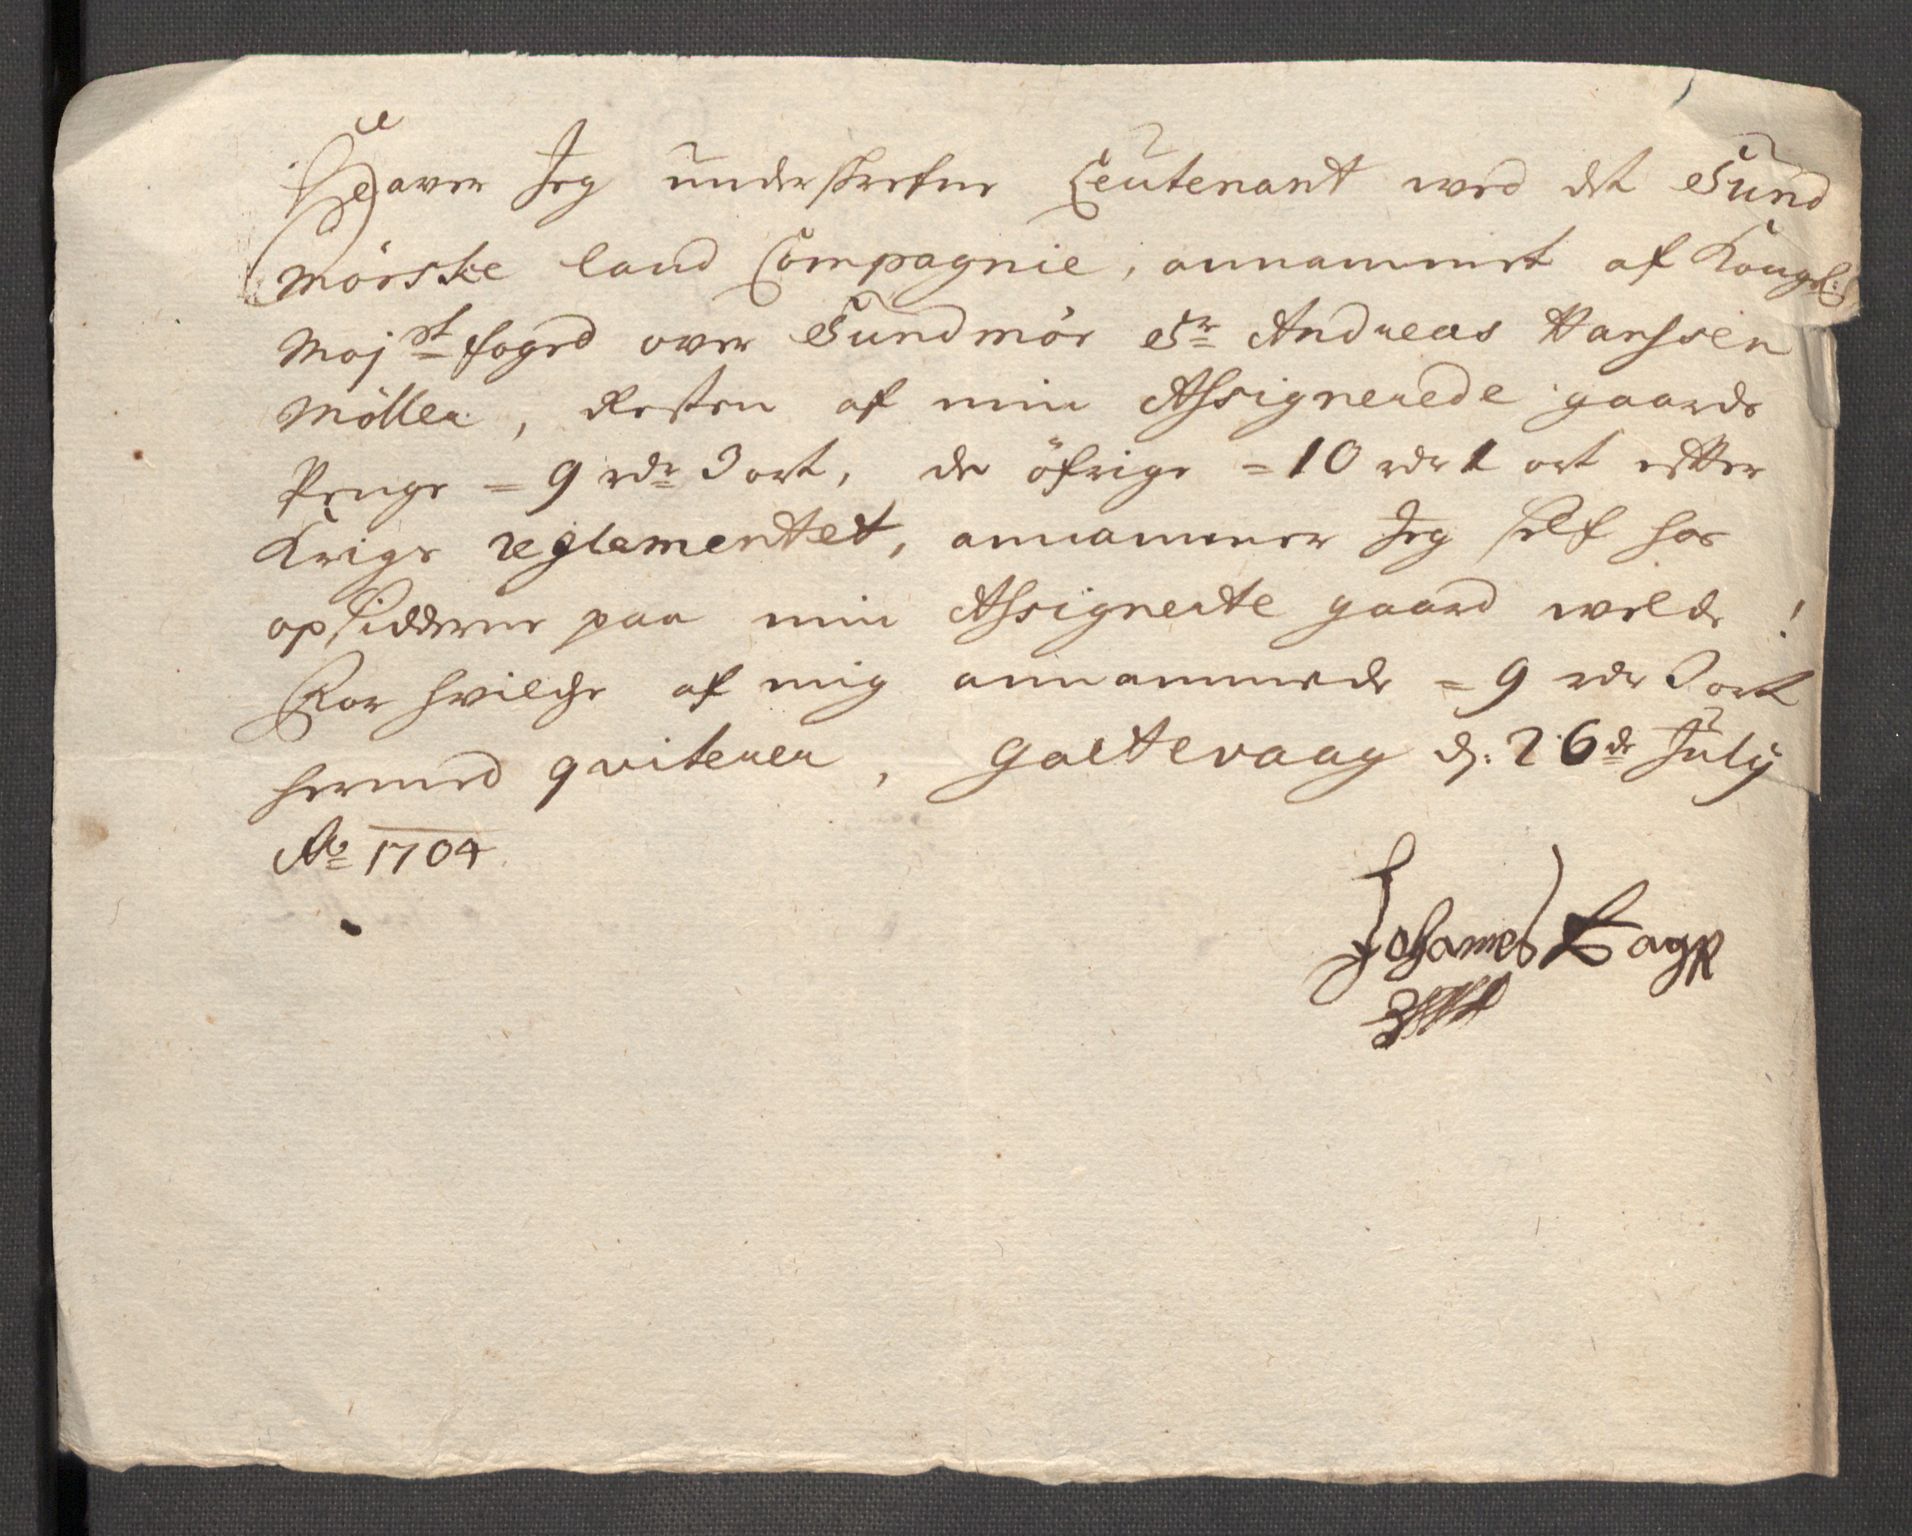 Haver Jeg underskrefne Leutenant wed det Sund
mörske land Compagnie, annammet af Kongel:
Majst foged over Sundmör Sr Andreas Hanssen
Möller, Resten af min Assignerede gaards
Penge = 9 rdr 3 ort, de öfrige = 10 rdr 1 ort efter
Krigs reglementet, annammer Jeg self hos
opsidderne paa min Assignerte gaard welde!
For hvilche af mig annammede = 9 rdr 3 ort
hermed qviterer, Goltevaag d: 26de July
Ao 1704
Johannes